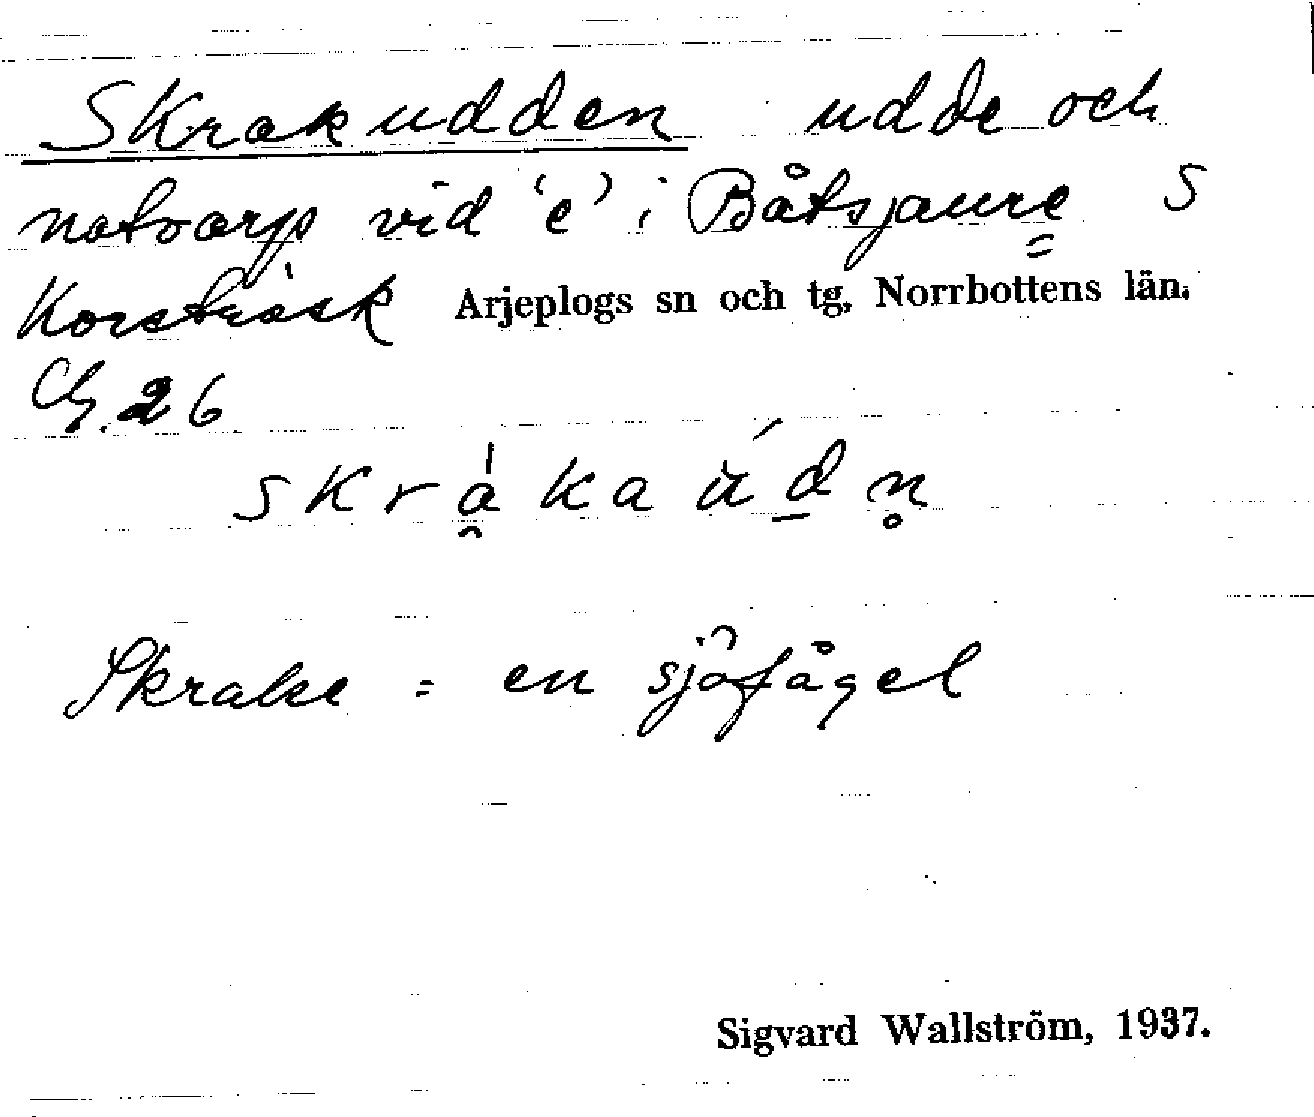 Skrakudden udde och
notvarp vid 'e' i Båtsjaure S
Korsträsk Arjeplogs sn och tg, Norrbottens län.
26
skràkaúdn̥
Skrake = en sjöfågel
Sigvard Wallström, 1937.